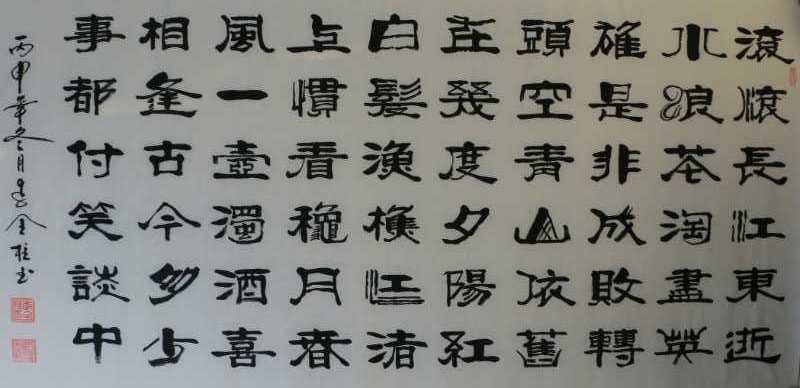 滾滾長江東逝
水浪花淘盡英
雄是非成敗轉
頭空青山依舊
在幾度夕陽紅
白髮漁樵江渚
上慣看穐月春
風一壺濁酒喜
相逢古今多少
事都付笑談中
丙申年冬月金柱书